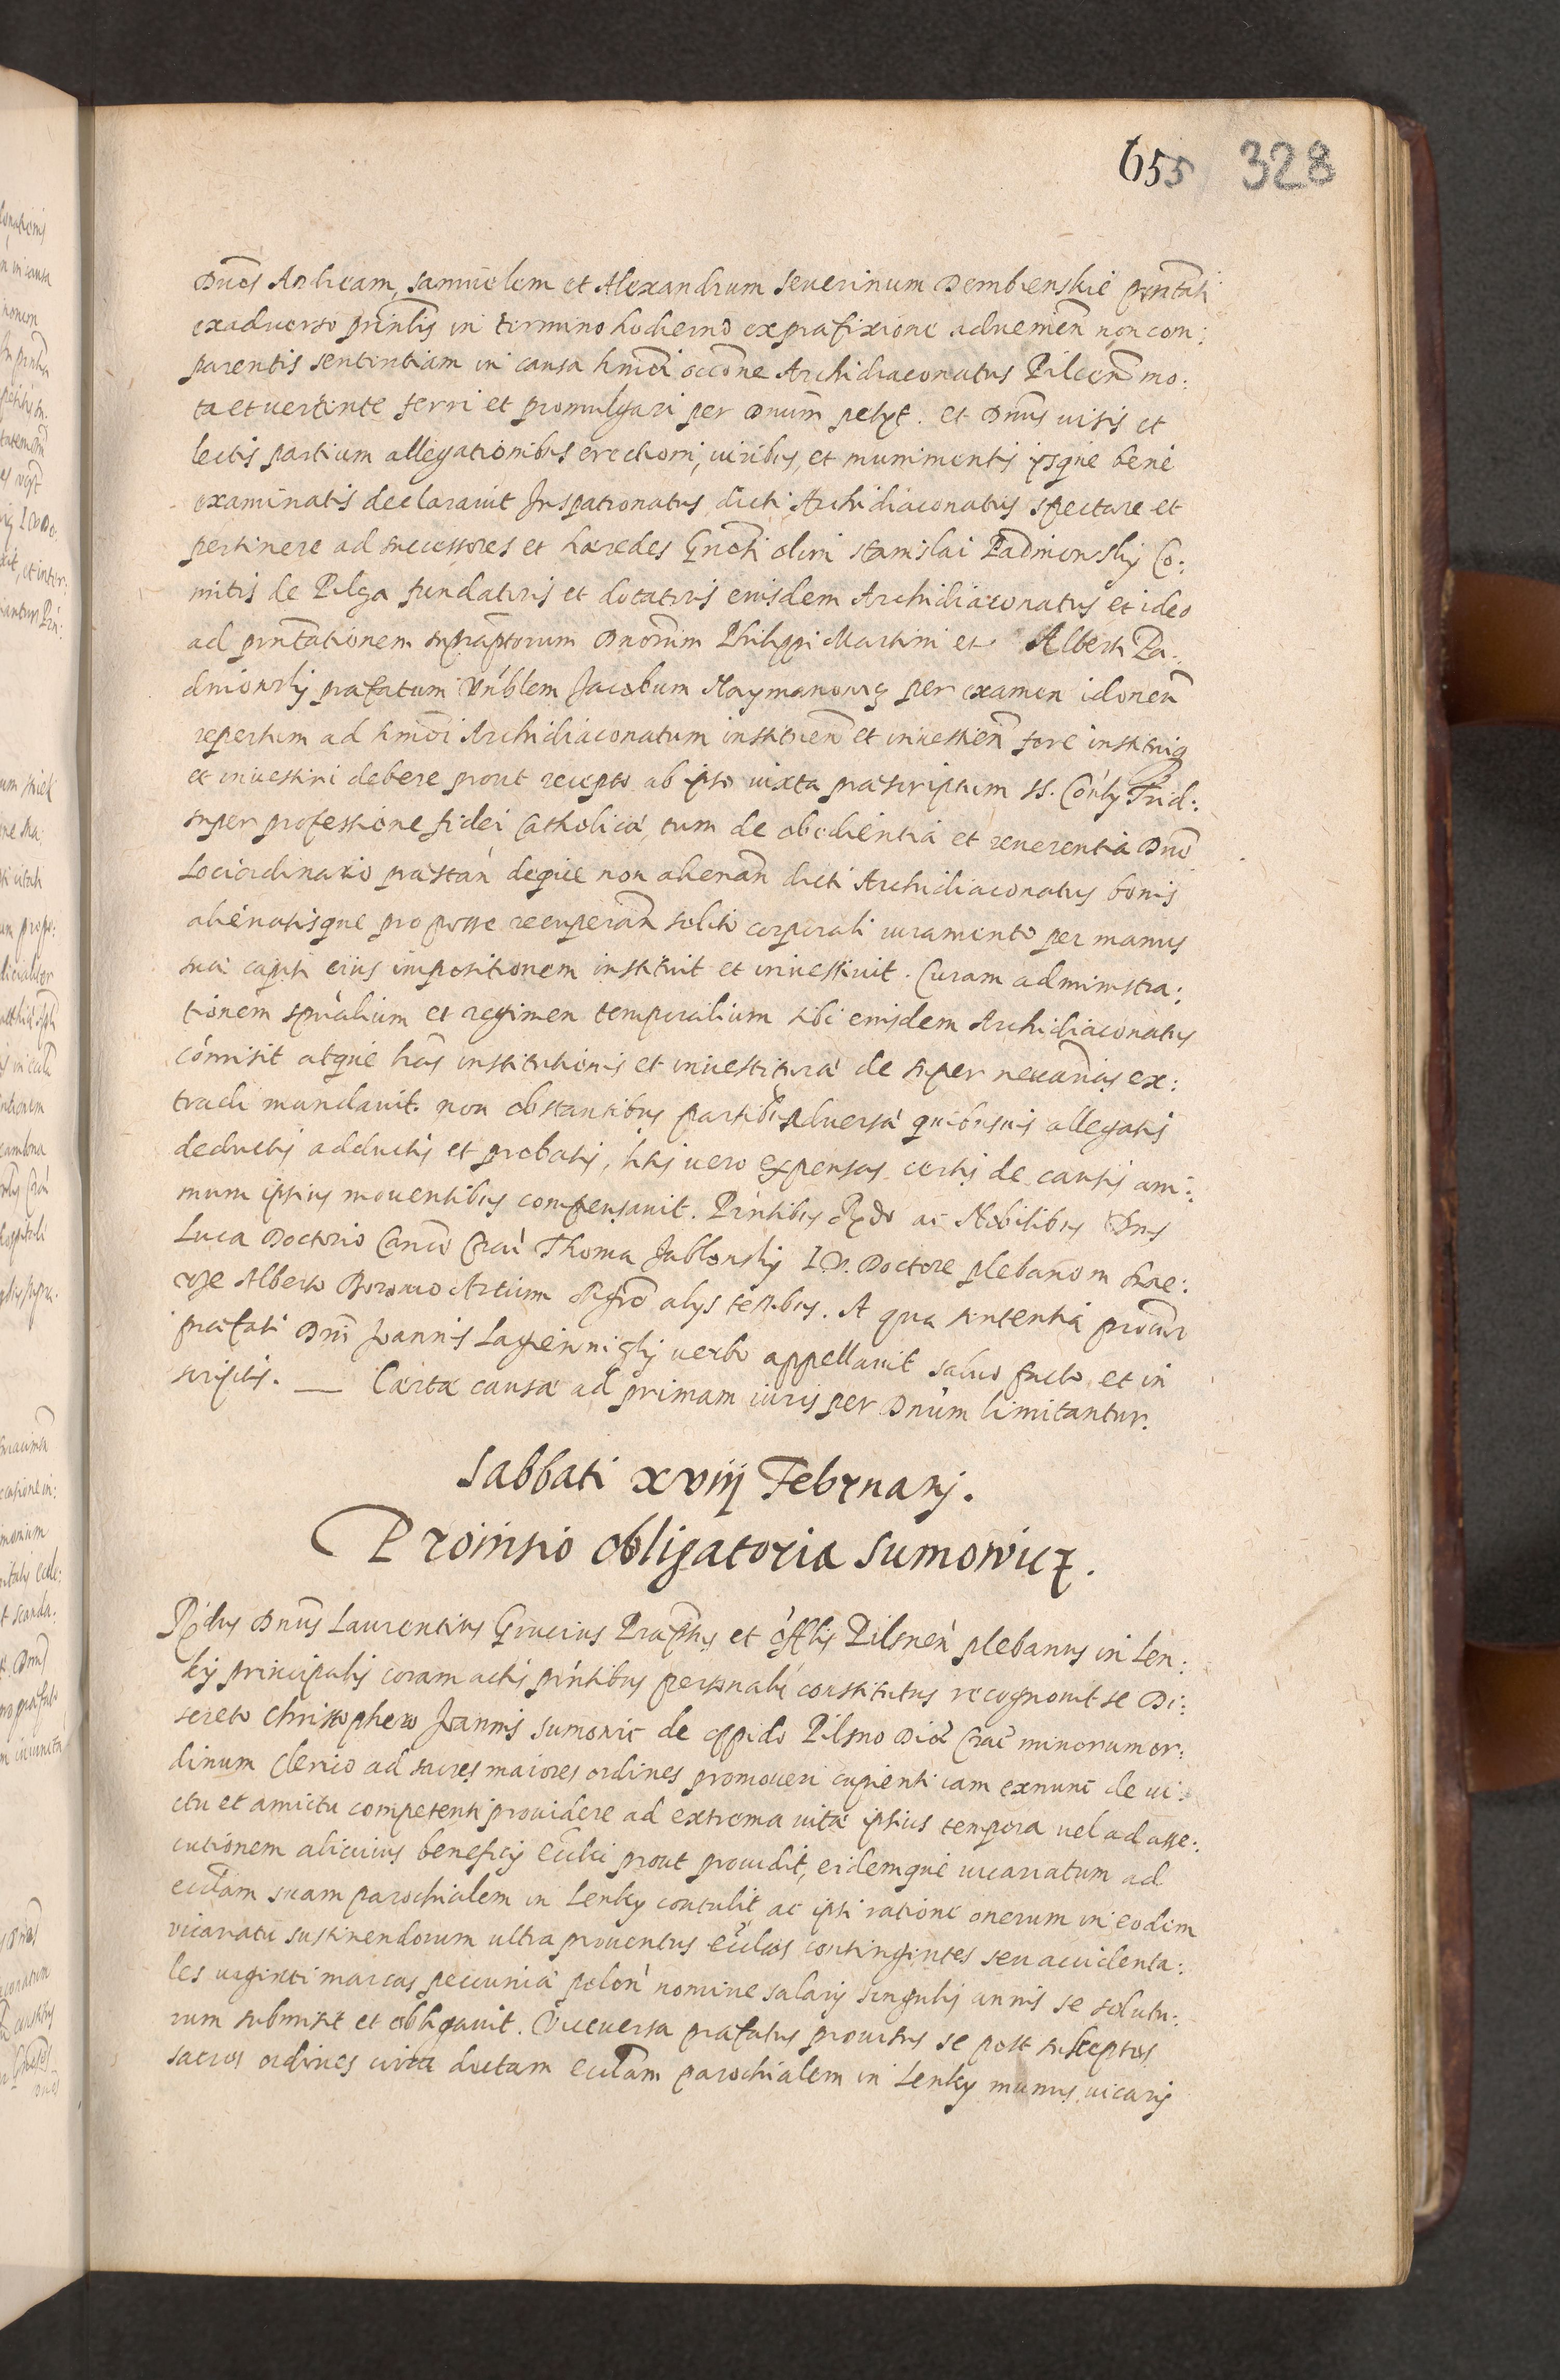 655 328
Dnos Andream, Samuelem et Alexandrum Seuerinum Dembienskie pntati
exaduerso prinlis in termino hodierno ex praefixione aduemen non com:
parentis sententiam in causa hmoi occone Archidiaconatus Pilcen mo:
ta et uertente ferri et promulgari per Dnum petyt. et Dnus uisis et
lectis partium allegationibus erectioni, iuribus, et munimentis ysque bene
examinatis declarauit Juspatronatus dicti Archidiaconatus spectare et
pertinere ad successores et haeredes Gnosi olim Stanislai Padniewskij Co:
mitis de Pilga fundatoris et dotatoris eiusdem Archidiaconatus et ideo
ad pntationem supraptorum Dnorum Philippi Martini et Alberti Pa:
dniowskij praefatum Vnblem Jacobum Naymanowicz per examen idoneu
repertum ad hmoi Archidiaconatum instituen et inuestien fore instituiq
et inuestiri debere prout recepto ab ipso iuxta praescriptum SS. Conly Trid:
super professione fidei Catholica, tum de obedientia et reuerentia Dno
Lociordinario praestan deque non alienan dicti Archidiaconatus bonis
alienatisque pro posse recuperan solito corporali iuramento per manus
sua capiti eius impositionem instituit et inuestiuit. Curam administra:
tionem spualium et regimen temporalium sibi eiusdem Archidiaconatus
comisit atque lras institutionis et inuestitura de super necarias ex:
tradi mandauit. non obstantibus partis aduersa quibusuis allegatis
deductis adductis et probatis, litis uero expensas certis de causis ani:
mum ipsius mouentibus compensauit. Pntibus Rdo ac Nobilibus Dnis
Luca Doctorio Canco Crac Thoma Jablonsky I.V. Doctore plebano in
Alberto Borowo Artium Mgro alys testibus. A qua sententia procur
praefati Dni Joannis uerbo appellauit saluo facto et in
scriptis. — Caetae causae ad primam iuris per Dnum limitantur.
Sabbati xviij Februarij.
Prouisio obligatoria Sumowicz.
Rdus Dnus Laurentius Grucius Praeptus et offlis Pilsnen plebanus in Len:
ky principalis coram actis pntibus personalr constitutus recognouit se Di:
screto Christophero Joannis Sumowic de oppido Pilsno Dioc Crac minorum or:
dinum Clerico ad sacros maiores ordines promoueri cupienti iam exnunc de ui:
ctu et amictu competenti prouidere ad extrema uitae ipsius tempora uel ad asse:
cutionem alicuius beneficij eccliae prout prouidit, eidemque uicariatum ad
ecclam suam parochialem in Lenky contulit ac ipsi ratione onerum in eodem
vicariatu sustinendorum ultra prouentus ecclae contingentes seu accidenta:
les uiginti marcas pecuniae polon nomine salarij singulis annis se solutu:
rum submisit et obligauit. Viceuersa praefatus prouisus se post susceptos
sacros ordines circa dictam ecclam parochialem in Lenky munus uicarij